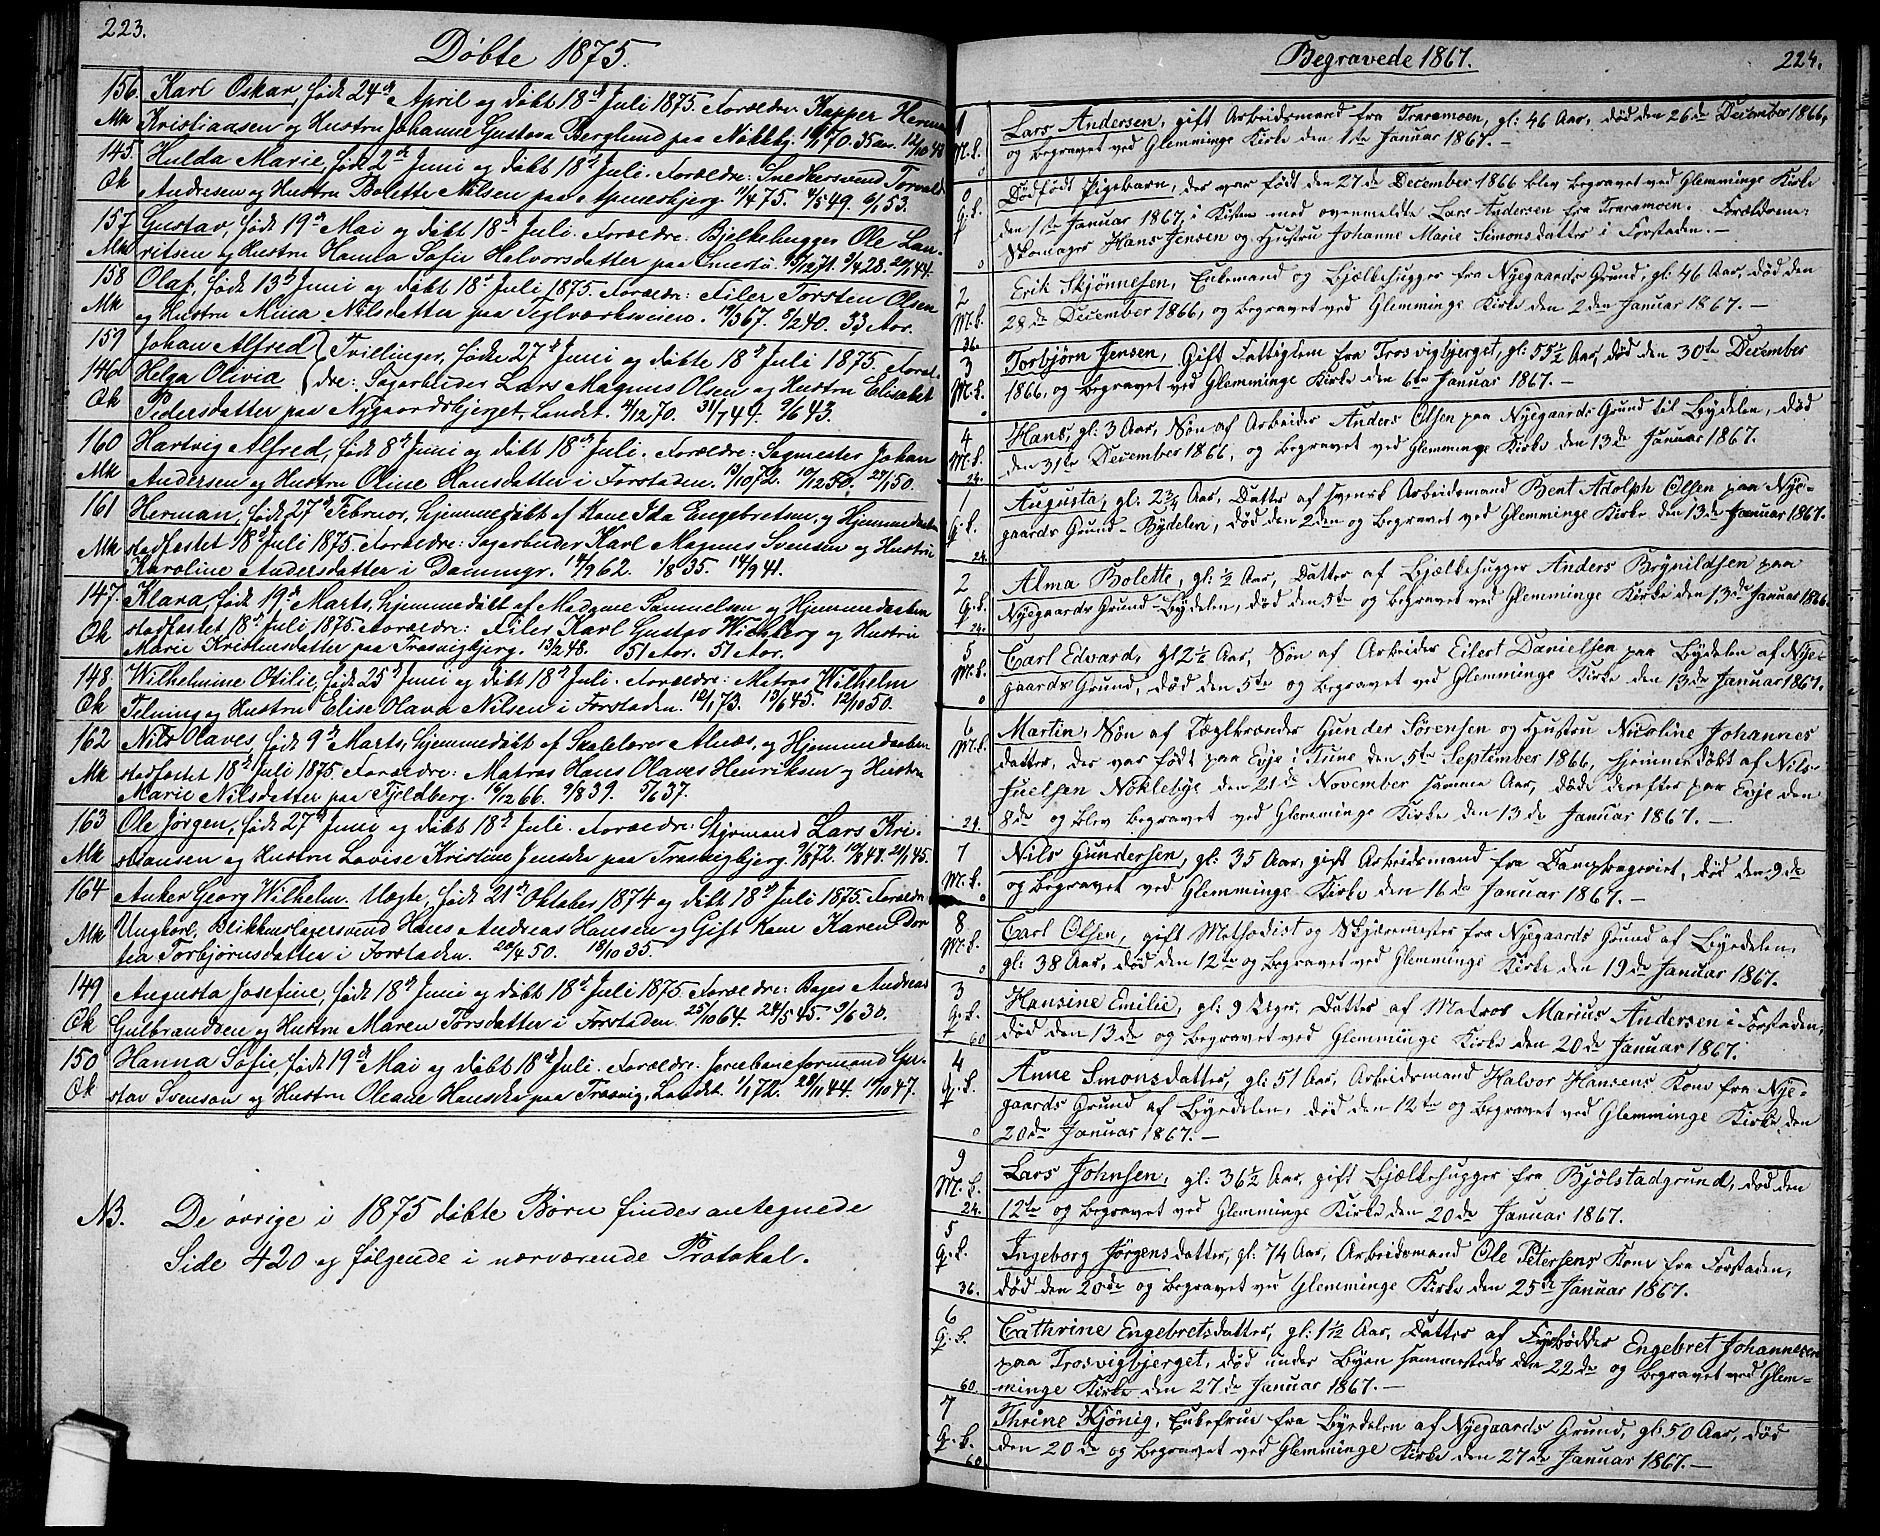 223.
Døbte 1875.
156. Karl Oskar, født 24de April og døbt 18de Juli 1875. Forældre: Kapper Herman
Mk Kristiansen og Hustru Johanne Gustava Berglund paa Nøkkebj. 70. 35 aar. 12/10 48
145. Hulda Marie, født 2den Juni og døbt 18de Juli. Forældre: Snedkersvend Torvald
Qk Andresen og Hustru Bolette Nilsen paa Apenesbjerg. 11/4 75. 4/5 49. 6/1 53.
157 Gustav, født 19de Mai og døbt 18de Juli. Forældre: Bjelkehugger Ole Lau-
Mk ritsen og Hustru Hanna Sofie Halvorsdatter paa 13/12 71. 9/4 28. 20/1 44.
158 Olaf, født 13de Juni og døbt 18de Juli 1875. Forældre: Filer Torsten Olsen
Mk og Hustru Mina Nilsdatter paa Teglværksveien. 17/3 67. 8/2 40. 33 Aar.
159 Johan Alfred } Tvillinger, fødte 27de Juni og døbte 18de Juli 1875. Foræl-
146 Helga Olivia } dre: Sagarbeider Lars Magnus Olsen og Hustru Elisabet
Qk Pedersdatter paa Nygaardsbjerget, Landet. 4/12 70. 31/7 49. 9/6 43.
160 Hartvig Alfred, født 8de Juni og døbt 18de Juli. Forældre: Sagmester Johan
Mk Andersen og Hustru Oline Hansdatter i Forstaden. 13/10 72. 10/12 50. 27/1 50.
161 Herman, født 27de Februar, hjemmedøbt af Kone Ida Engebretsen, og Hjemmedaaben
Mk stadfæstet 18de Juli 1875. Forældre: Sagarbeider Karl Magnus Svensen og Hustru
Karoline Andersdatter i Dammgr. 14/9 62. 1/8 35. 14/9 41.
147. Klara, født 19de Marts, hjemmedøbt af Madame Samuelsen og Hjemmedaaben
Qk stadfæstet 18de Juli 1875. Forældre: Filer Karl Gustav Wickberg og Hustru
Marie Kristensdatter paa Trosvigbjerg. 13/2 48. 51 Aar. 51 Aar.
148. Wilhelmine Otilie, født 25de Juni og døbt 18de Juli. Forældre: Matros Wilhelm
Qk Telning og Hustru Elise Olava Nilsen i Forstaden. 12/1 73. 13/6 45. 12/10 50.
162 Nils Olaves, født 9de Marts, hjemmedøbt af Skolelærer Alnæs, og Hjemmedaaben
Mk stadfæstet 18de Juli 1875. Forældre: Matros Hans Olaves Henriksen og Hustru
Marie Nilsdatter paa Fjeldberg. 16/12 66. 9/8 39. 5/6 37.
163 Ole Jørgen, født 27de Juni og døbt 18de Juli. Forældre: Styrmand Lars Kri-
Mk stiansen og Hustru Lovise Kristine Jensdtr paa Trosvigbjerg. 9/8 72. 10/8 48. 21/1 45.
164 Anker Georg Wilhelm. Uægte, født 21de Oktober 1874 og døbt 18de Juli 1875. Forældre:
Mk Ungkarl, Blikkenslagersvend Hans Andreas Hansen og Gift Kone Karen Doro
tea Torbjørnsdatter i Forstaden. 20/4 50. 18/10 35.
149 Augusta Josefine, født 18de Juni og døbt 18de Juli 1875. Forældre: Bager Andreas
Qk Gulbrandsen og Hustru Maren Torsdatter i Forstaden. 25/10 64. 24/5 45. 9/6 30.
150 Hanna Sofie, født 19de Mai og døbt 18de Juli. Forældre: Jernbaneformand Gu-
Qk stav Svenson og Hustru Oleane Hansdtr paa Trosvig, Landet. 1/1 72. 28/1 44. 10/10 47.
NB. De øvrige i 1875 døbte Børn findes antegnede
Side 420 og følgende i nærværende Protokol.
Begravede 1867.
224.
1 Lars Andersen, gift Arbeidsmand fra Traramoen, gl: 46 Aar, død den 26de December 1866,
M.k. og begravet ved Glemminge Kirke den 1ste Januar 1867. —
0
0 Dødfødt Pigebarn, der var født den 27de December 1866 blev begravet ved Glemminge Kirke
Q.k. den 1ste Januar 1867, i Kiste med ovenmeldte Lars Andersen fra Traramoen. Forældrene:
0 Skomager Hans Jensen og Hustru Johanne Marie Simonsdatter i Forstaden. —
2 Erik Skjønnesen, Enkemand og Bjælkehugger fra Nyegaards Grund, gl: 46 Aar, død den
M.k. 28de December 1866, og begravet ved Glemminge Kirke den 2den Januar 1867. —
36.
3 Torbjørn Jensen, Gift Fattiglem fra Trosvigbjerget, gl: 55½ Aar, død den 30te December
M.k. 1866, og begravet ved Glemminge Kirke den 6te Januar 1867. —
0
4 Hans, gl: 3 Aar, Søn af Arbeider Anders Olsen paa Nyegaards Grund til Bydelen, død
M.k. den 31te December 1866, og begravet ved Glemminge Kirke den 13de Januar 1867.
24.
1 Augusta, gl: 2¾ Aar, Datter af svensk Arbeidsmand Bent Adolph Olsen paa Nye-
Q.k. gaards Grund - Bydelen, død den 2den og begravet ved Glemminge Kirke den 13de Januar 1867.
24.
2 Alma Bolette, gl: ½ Aar, Datter af Bjælkehugger Anders Brynildsen paa
Q.k. Nyegaards Grund - Bydelen, død den 5te og begravet ved Glemminge Kirke den 13de Januar 1866.
24.
5 Carl Edvard, gl 2½ Aar, Søn af Arbeider Eilert Danielsen paa Bydelen af Nye-
M.k. gaards Grund, død den 5te og begravet ved Glemminge Kirke den 13de Januar 1867.
0
6 Martin, Søn af Tæglbrænder Gunder Sørensen og Hustru Nicoline Johannes
M.k. datter, der var født paa Evje i Tune den 5te September 1866, hjemmedøbt af Nils
Juelsen Nøklebye den 21de November samme Aar, døde derefter paa Evje den
24. 8de og blev begravet ved Glemminge Kirke den 13de Januar 1867. —
7 Nils Gundersen, gl: 35 Aar, gift Arbeidsmand fra Dampbageriet, død den 9de
M.k. og begravet ved Glemminge Kirke den 16de Januar 1867. —
0
8 Carl Olsen, gift Methodist og Skjæremester fra Nyegaards Grund af Byedelen,
M.k. gl: 38 Aar, død den 12te og begravet ved Glemminge Kirke den 19de Januar 1867.
0
3 Hansine Emilie, gl: 9 Uger, Datter af Matros Marius Andersen i Forstaden,
Q.k. død den 13de og begravet ved Glemminge Kirke den 20de Januar 1867.
60
4 Anne Simonsdatter, gl: 51 Aar, Arbeidsmand Halvor Hansens Kone fra Nye-
Q.k. gaards Grund af Byedelen, død den 12te og begravet ved Glemminge Kirke den
0 20de Januar 1867. —
9 Lars Johnsen, gl: 36½ Aar, gift Bjælkehugger fra Bjølstadgrund, død den
M.k. 12te og begravet ved Glemminge Kirke den 20de Januar 1867.
24.
5 Ingeborg Jørgensdatter, gl: 74 Aar, Arbeidsmand Ole Petersens Kone fra Forstaden,
Q.k. død den 20de og begravet ved Glemminge Kirke den 25de Januar 1867.
36.
6 Cathrine Engebretsdatter, gl: 1½ Aar, Datter af Fyrbødder Engebret Johannesen
Q.k. paa Trosvigbjerget, død under Byen sammesteds den 22de og begravet ved Glem-
60. minge Kirke den 27de Januar 1867. —
7 Thrine Kjönig, Enkefrue fra Byedelen af Nyegaards Grund, gl: 50 Aar, død
Q.k. den 20de og begravet ved Glemminge Kirke den 27de Januar 1867. —
60